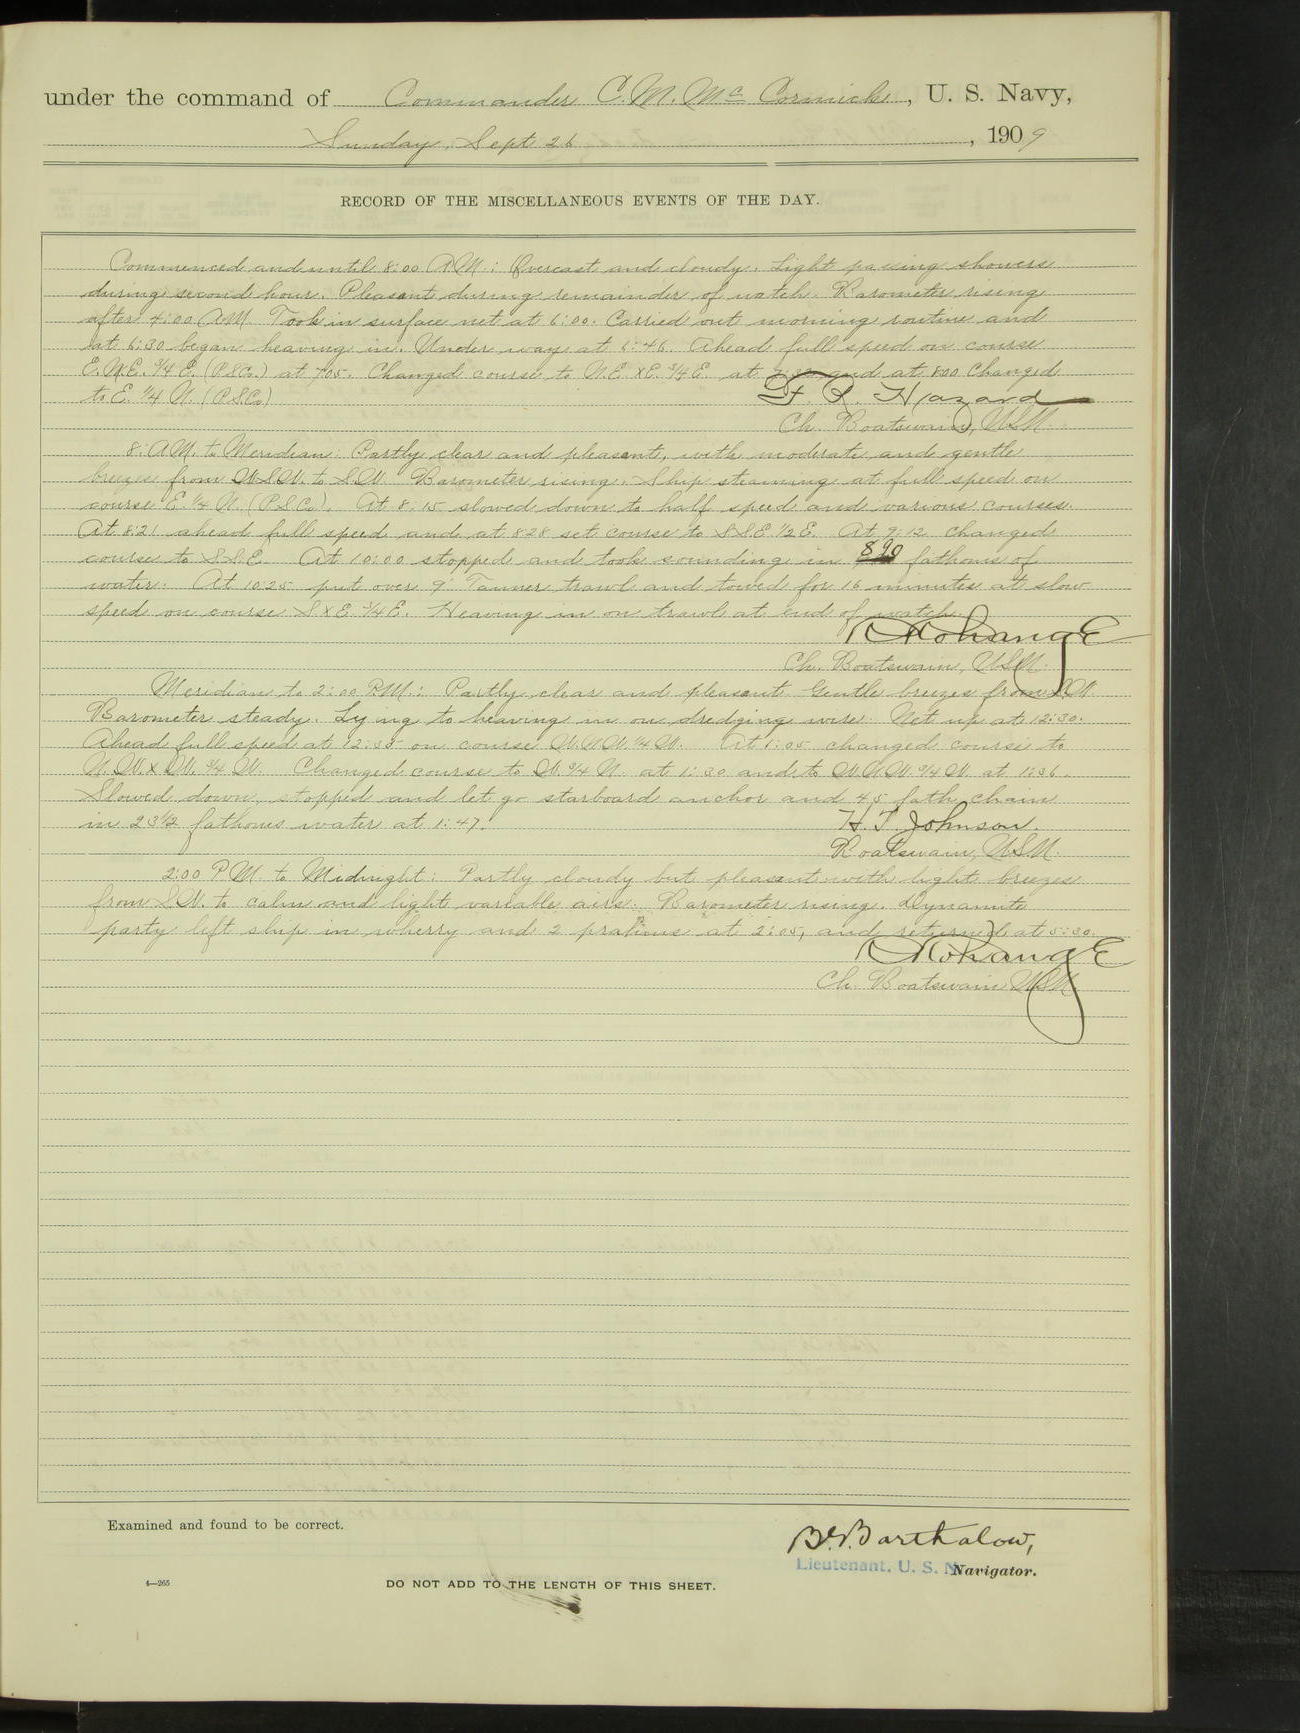 under the command of Commander C. M. Mc Cormick, U. S. Navy,
Sunday, Sept 26, 1909
RECORD OF THE MISCELLANEOUS EVENTS OF THE DAY.
Commenced and until 8:00 A.M.: Overcast and cloudy. Light passing showers
during second hour. Pleasant during remainder of watch. Barometer rising
after 4:00 A.M. Took in surface net at 6:00. Carried out morning routine and
at 6:30 began heaving in. Under way at 6:46. Ahead full speed on course
E.N.E. 3/4 E. (P.S.C.) at 7:05. Changed course to N.E. x E. 3/4 E. at and at 8:00 Changed
to E. 1/4 N. (P.S.C.)
F. R. Hazard
Ch. Boatswain, U.S.N.
8: A.M. to Meridian: Partly clear and pleasant, with moderate and gentle
breezes from W.S.W. to S.W. Barometer rising. Ship steaming at full speed on
course E. 1/4 N. (P.S.C.). At 8:15 slowed down to half speed and various courses.
At 8:21 ahead full speed and at 8:28 set course to S.S.E. 1/2 E. At 9:12 changed
course to S.S.E. At 10:00 stopped and took sounding in 890 fathoms of
water. At 10:25 put over 9' Tanner trawl and towed for 16 minutes at slow
speed on course S x E 3/4 E. Heaving in on trawl at end of watch.
Ch. Boatswain, U.S.N.
Meridian to 2:00 P.M.: Partly clear and pleasant. Gentle breezes from S.W.
Barometer steady. Lying to heaving in on dredging wire. Net up at 12:30.
Ahead full speed at 12:35 on course W.N.W. 1/4 W. At 1:05 changed course to
N.W. x W. 3/4 W. Changed course to W. 3/4 N. at 1:30 and to W.N.W. 3/4 W. at 1:36.
Slowed down, stopped and let go starboard anchor and 45 fath. chain
in 23 1/2 fathoms water at 1:47.
H. T. Johnson.
Boatswain, U.S.N.
2:00 P.M. to Midnight: Partly cloudy but pleasant with light breezes
from S.W. to calm and light variable airs. Barometer rising. Dynamite
party left ship in wherry and 2 prahms at 2:05, and returned at 5:30.
Ch. Boatswain U.S.N.
Examined and found to be correct.
Barthalow,
Lieutenant, U. S. N. Navigator.
4—265
DO NOT ADD TO THE LENGTH OF THIS SHEET.